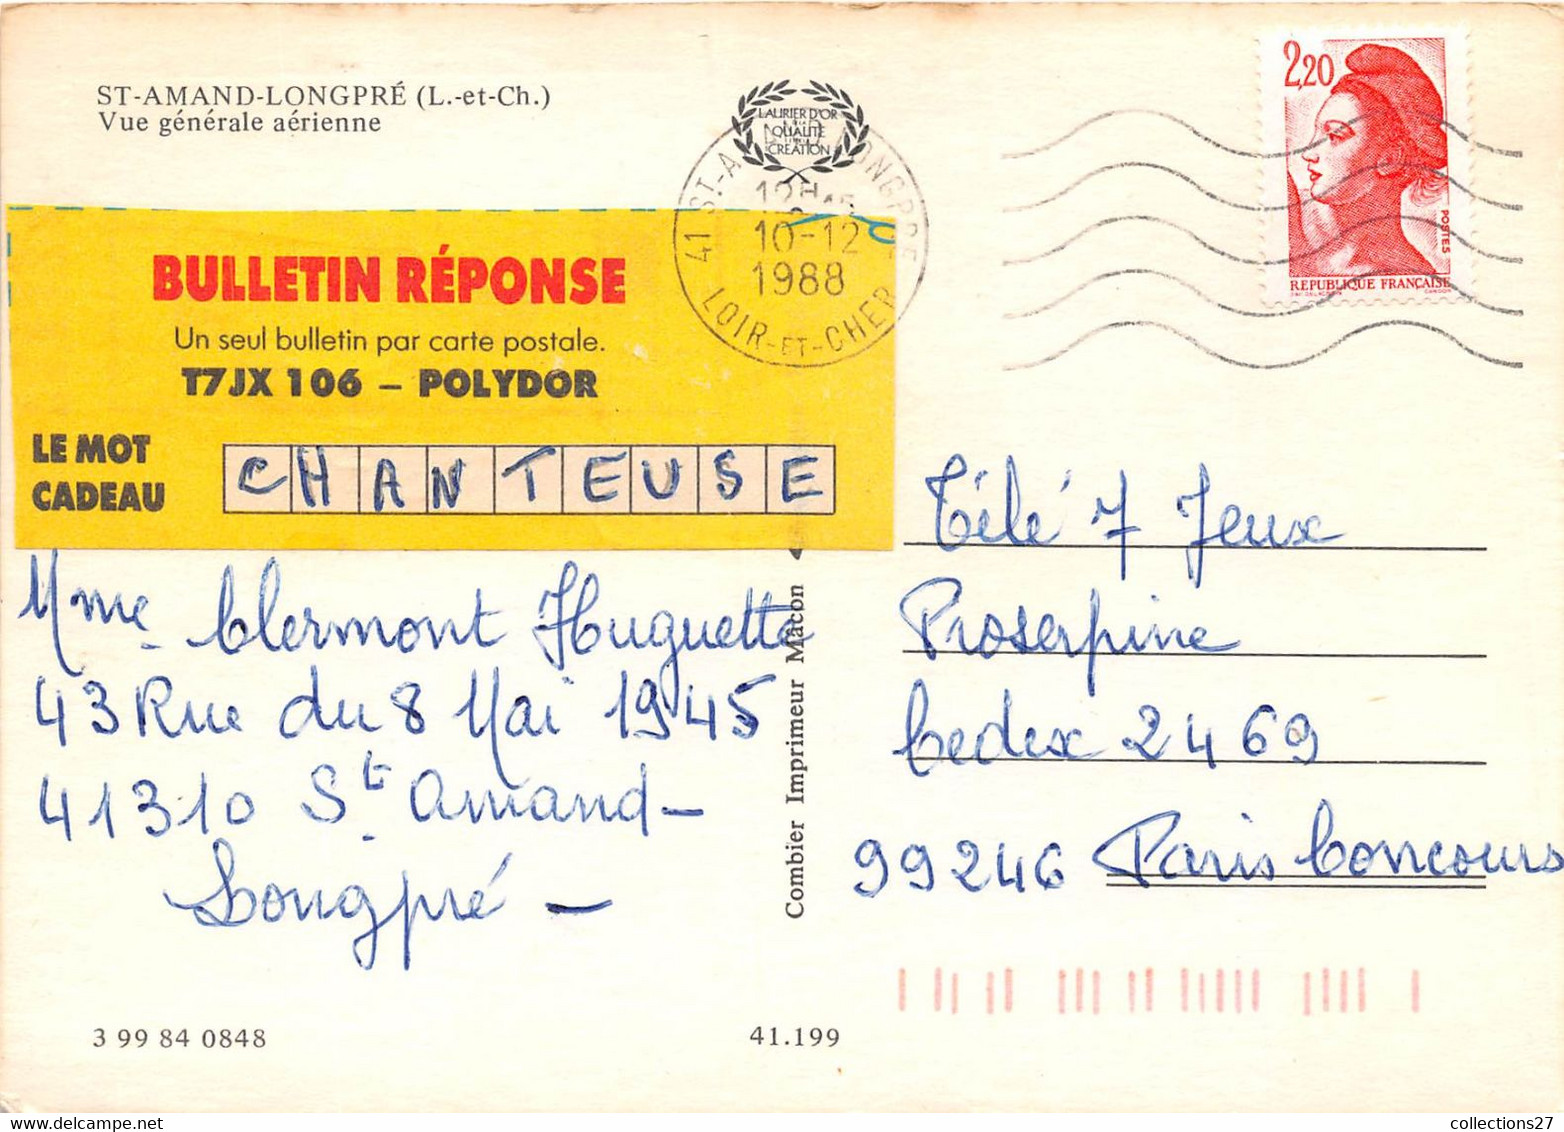 ST-AMAND-LONGPRÉ (L.-et-Ch.)
Vue générale aérienne
LAURIER D'OR
QUALITE
CREATION
41 ST-A ONGPRE
10-12
1988
LOIR-ET-CHER
2,20
POSTES
REPUBLIQUE FRANÇAISE
BULLETIN RÉPONSE
Un seul bulletin par carte postale.
T7JX 106 – POLYDOR
LE MOT
CADEAU
CHANTEUSE
Mme Clermont Huguette
43 Rue du 8 Mai 1945
41310 St Amand-
Longpré -
Combier Imprimeur Mâcon
Télé 7 Jeux
Proserpine
Cedex 2469
99246 Paris Concours
3 99 84 0848
41.199
collections27